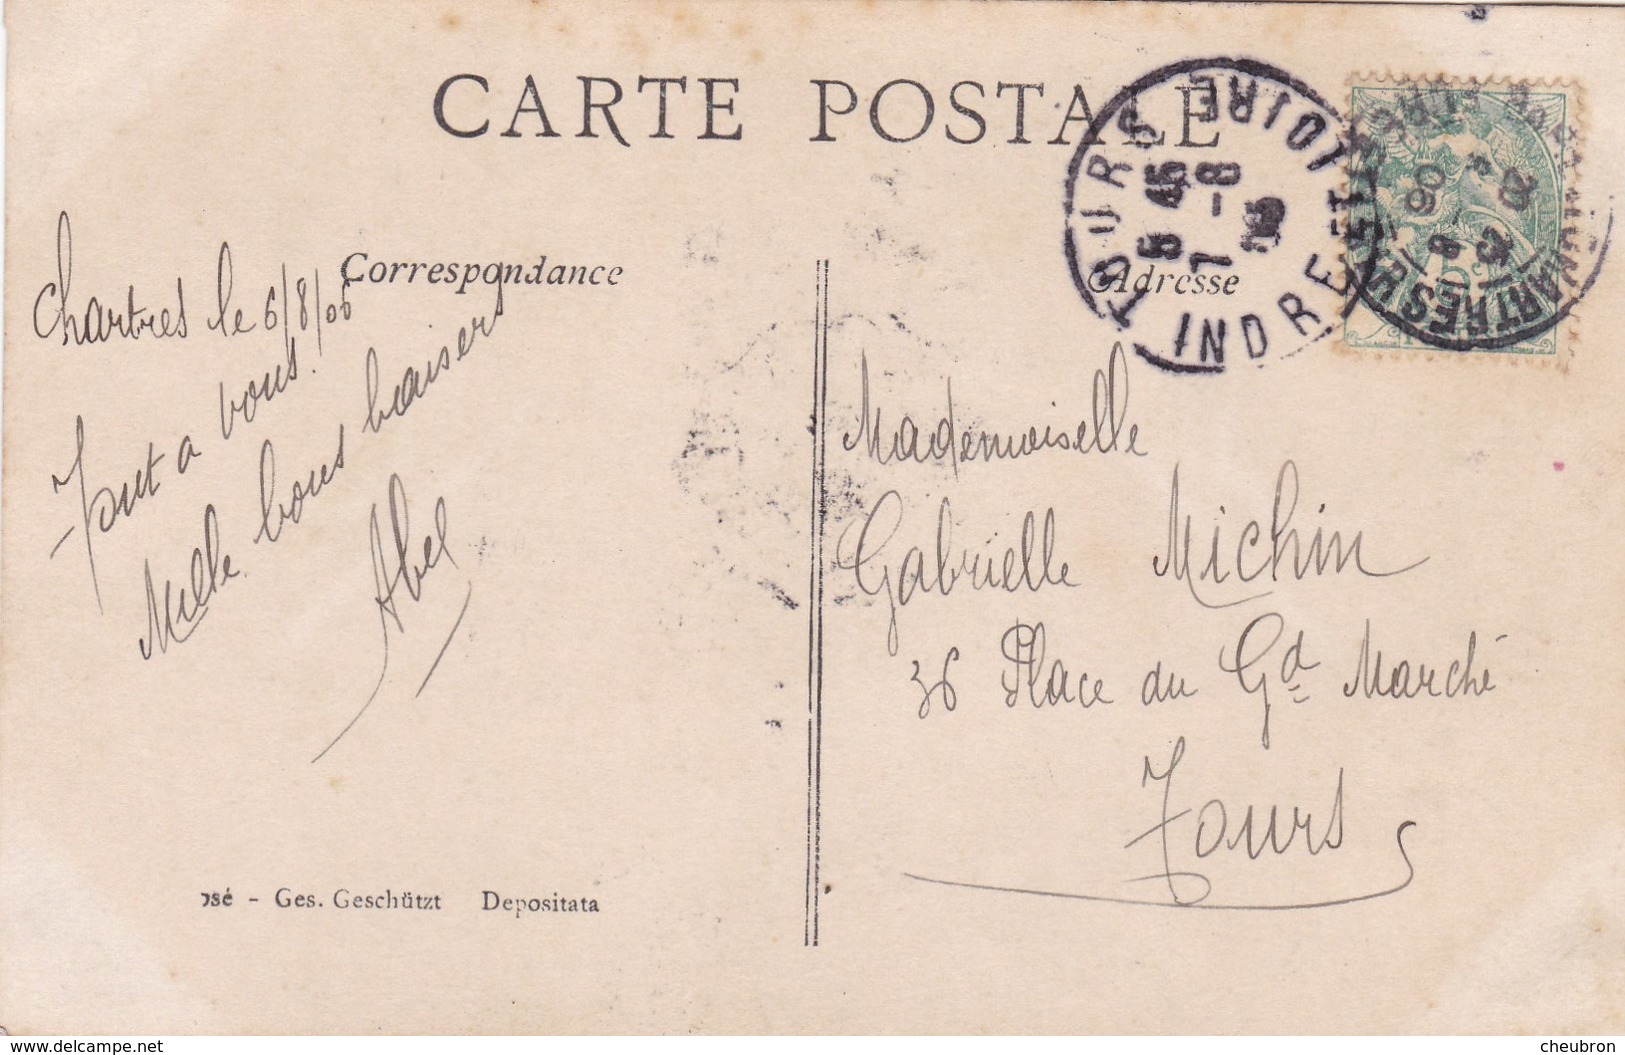 CARTE POSTALE
Correspondance
Adresse
TOURS
5 45
7 - 8
INDRE ET LOIRE
Chartres le 6/8/06
Tout a vous!
Mille bons baisers
Abel
Mademoiselle
Gabrielle Michin
36 Place du Gd Marché
Tours
osé - Ges. Geschützt Depositata
www.delcampe.net
cheubron